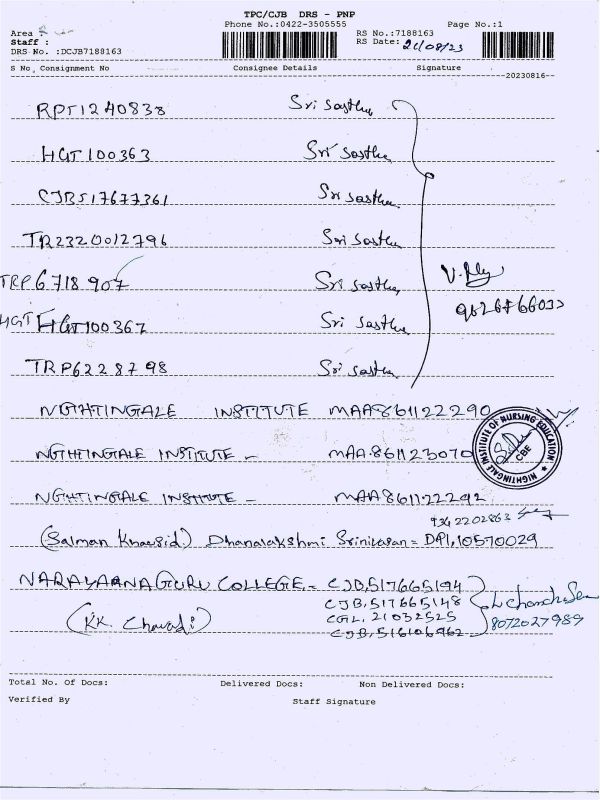 TPC/CJB DRS - PNP
Phone No.:0422-3505555 Page No.:1
Area :
Staff :
DRS No. :DCJB7188163
RS No.:7188163
RS Date: 21/08/23
S No Consignment No Consignee Details Signature
--20230816--
RPT1240838 Sri Sastha
HGT100363 Sri Sastha
CJB517677361 Sri Sastha
TR2320012796 Sri Sastha
TRP6718907 Sri Sastha
HGT HGT100367 Sri Sastha
TRP6228798 Sri Sastha
NGIHTINGALE INSTITUTE MAA861122290
NGIHTINGALE INSTITUTE - MAA.861123070
NGIHTINGALE INSTITUTE - MAA861122292
NIGHTINGALE INSTITUTE OF NURSING EDUCATION
CBE
(Salman Khursid) Dhanalakshmi Srinivasan = DPI,10570029
NARAYAANAGURU COLLEGE - CJB,517665194
CJB,517665148
(KK. Chavadi) CGL, 21052525
CJB,516106962
8072027989
Total No. Of Docs: Delivered Docs: Non Delivered Docs:
Verified By Staff Signature